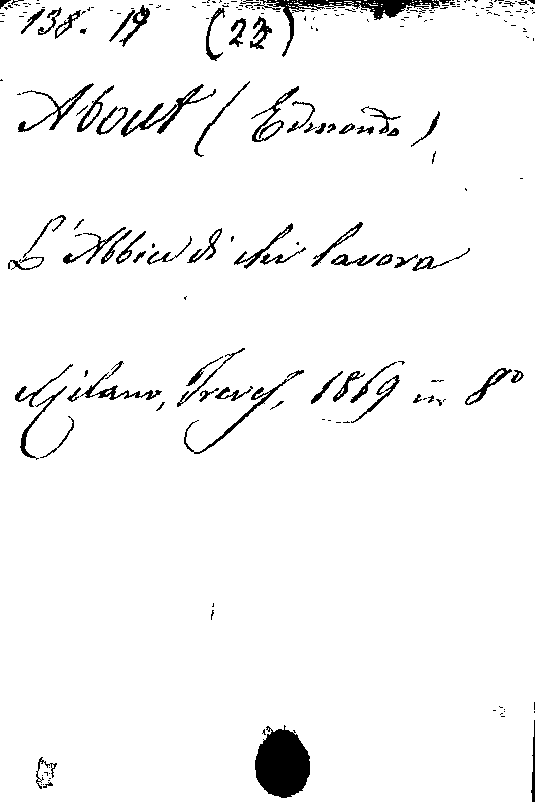 138. 19 (22)
About (Edmondo)
L'Abbici di chi lavora
Milano, Treves, 1869 in 8º